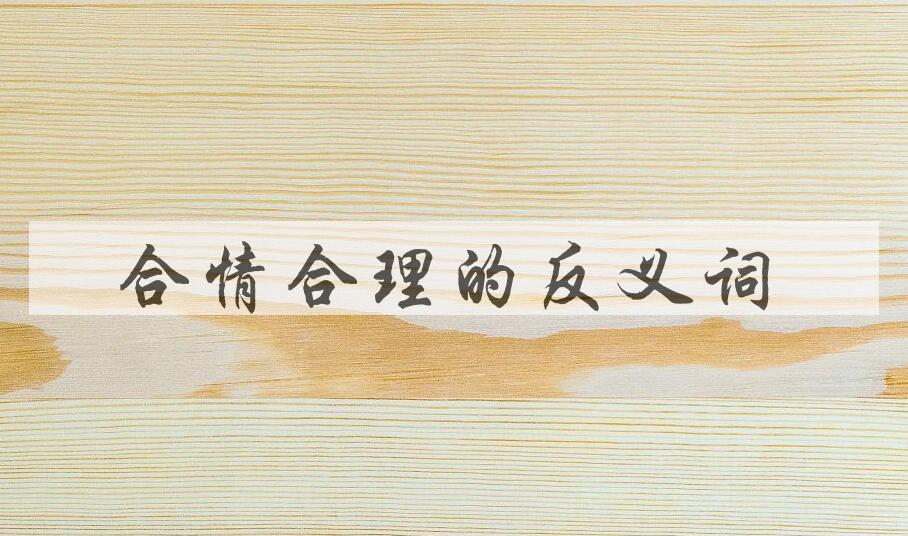 合情合理的反义词